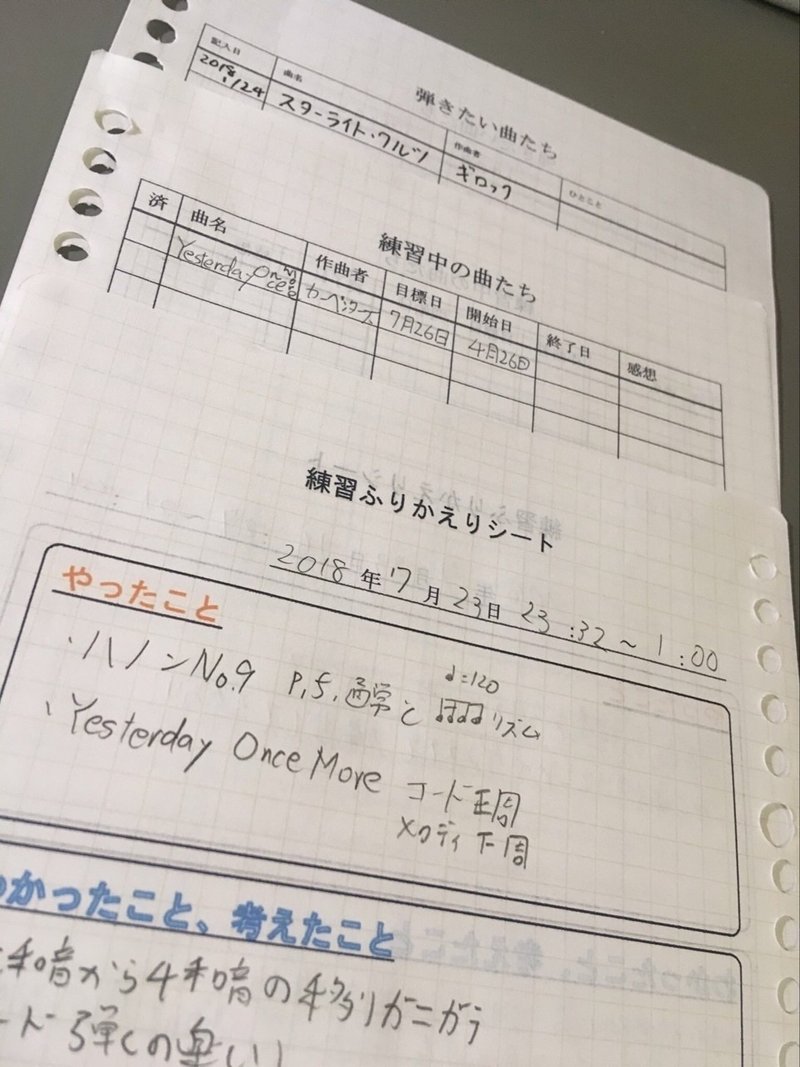 弾きたい曲たち
記入日 曲名 作曲者 ひとこと
2018.1/24 スターライト・ワルツ ギロック
練習中の曲たち
済 曲名 作曲者 目標日 開始日 終了日 感想
Yesterday Once More カーペンターズ 7月26日 4月26日
練習ふりかえりシート
2018年7月23日 23:32～1:00
やったこと
・ハノンNo.9 P,5, 通常と ♩=120 リズム
・Yesterday Once More コード 正周
メロディ 下周
かったこと、考えたこと
和音から4和音の移りがニガテ
ード弾くの楽しい